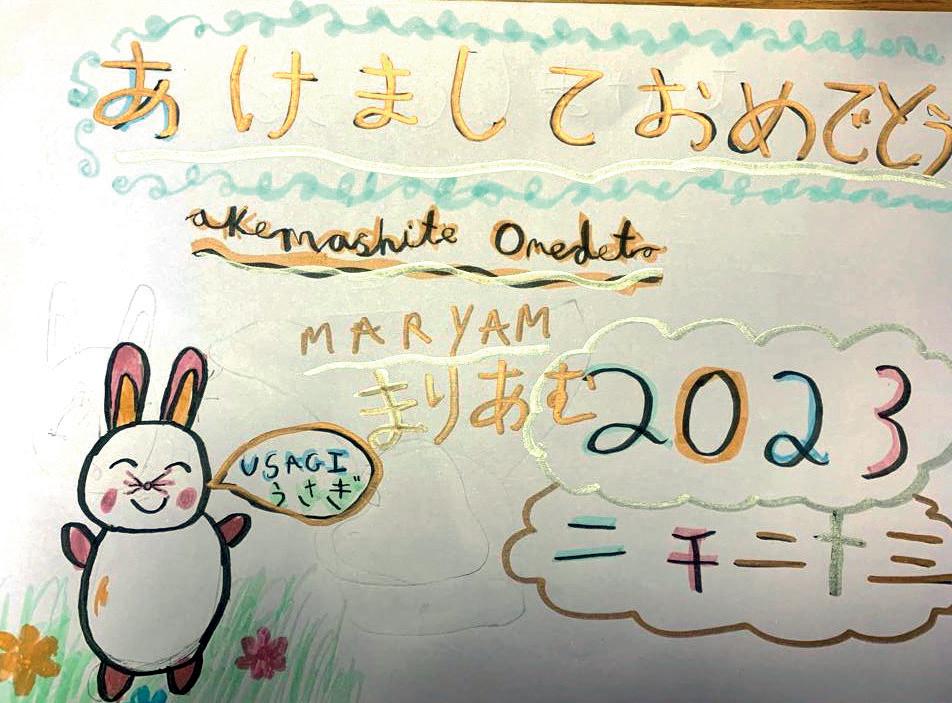 あけましておめでとう
akemashite Omedeto
MARYAM
まりあむ
2023
USAGI
うさぎ
二千二十三